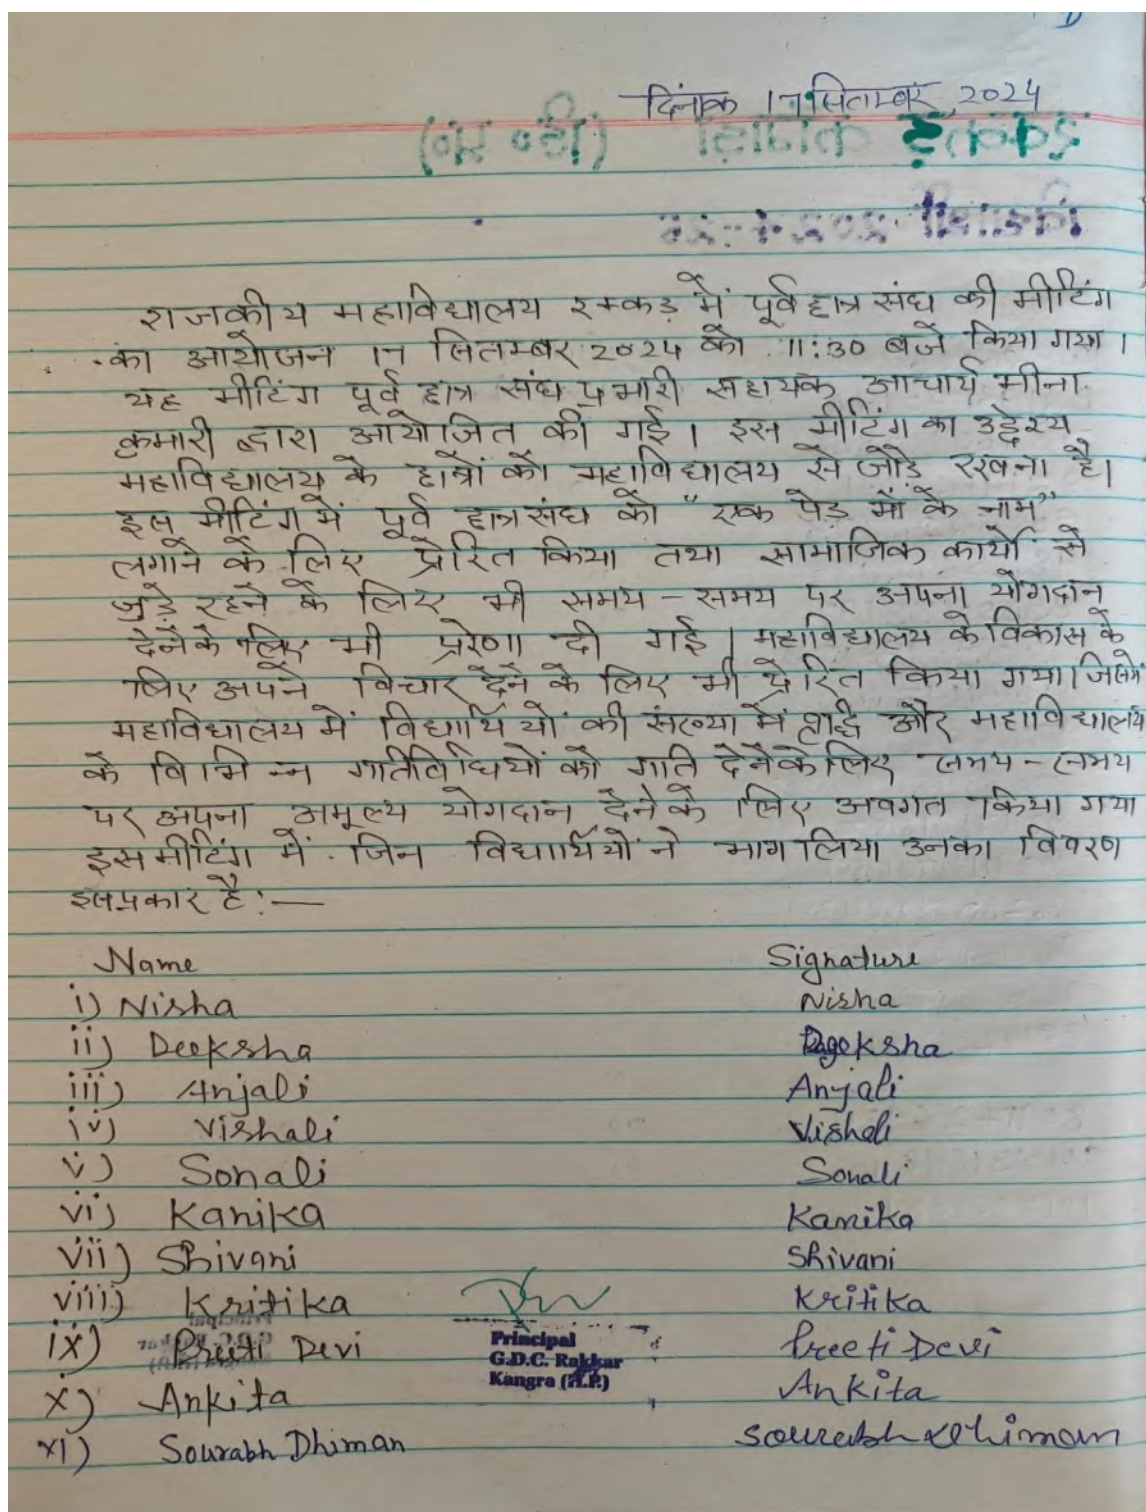 दिनांक 17 सितम्बर, 2024
राजकीय महाविद्यालय रक्कड़ में पूर्व छात्र संघ की मीटिंग
का आयोजन 17 सितम्बर 2024 को 11:30 बजे किया गया।
यह मीटिंग पूर्व छात्र संघ प्रभारी सहायक आचार्य मीना
कुमारी द्वारा आयोजित की गई। इस मीटिंग का उद्देश्य
महाविद्यालय के छात्रों को महाविद्यालय से जोड़े रखना है।
इस मीटिंग में पूर्व छात्र संघ को "एक पेड़ माँ के नाम"
लगाने के लिए प्रेरित किया तथा सामाजिक कार्यों से
जुड़े रहने के लिए भी समय - समय पर अपना योगदान
देने के लिए भी प्रेरणा दी गई। महाविद्यालय के विकास के
लिए अपने विचार देने के लिए भी प्रेरित किया गया। जिसमें
महाविद्यालय में विद्यार्थियों की संख्या में वृद्धि और महाविद्यालय
के विभिन्न गतिविधियों को गति देने के लिए समय - समय
पर अपना अमूल्य योगदान देने के लिए अवगत किया गया
इस मीटिंग में जिन विद्यार्थियों ने भाग लिया उनका विवरण
इस प्रकार है:—
Name Signature
i) Nisha Nisha
ii) Deeksha Deeksha
iii) Anjali Anjali
iv) Vishali Vishali
v) Sonali Sonali
vi) Kanika Kanika
vii) Shivani Shivani
viii) Kritika Kritika
ix) Preeti Devi Preeti Devi
Principal
G.D.C. Rakkar
Kangra (H.P.)
x) Ankita Ankita
xi) Sourabh Dhiman Sourabh Dhiman